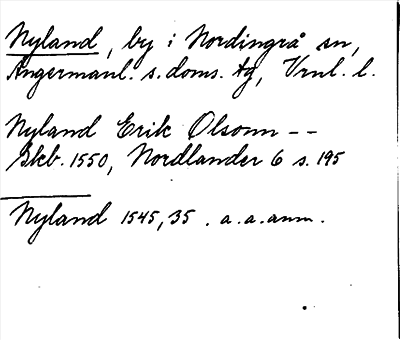 Nyland, by i Nordingrå sn,
Ångermanl. s. doms. tg, Vrnl. l.
Nyland Erik Olsonn --
Skb. 1550, Nordlander 6 s. 195
Nyland 1545, 35 . a. a. anm.